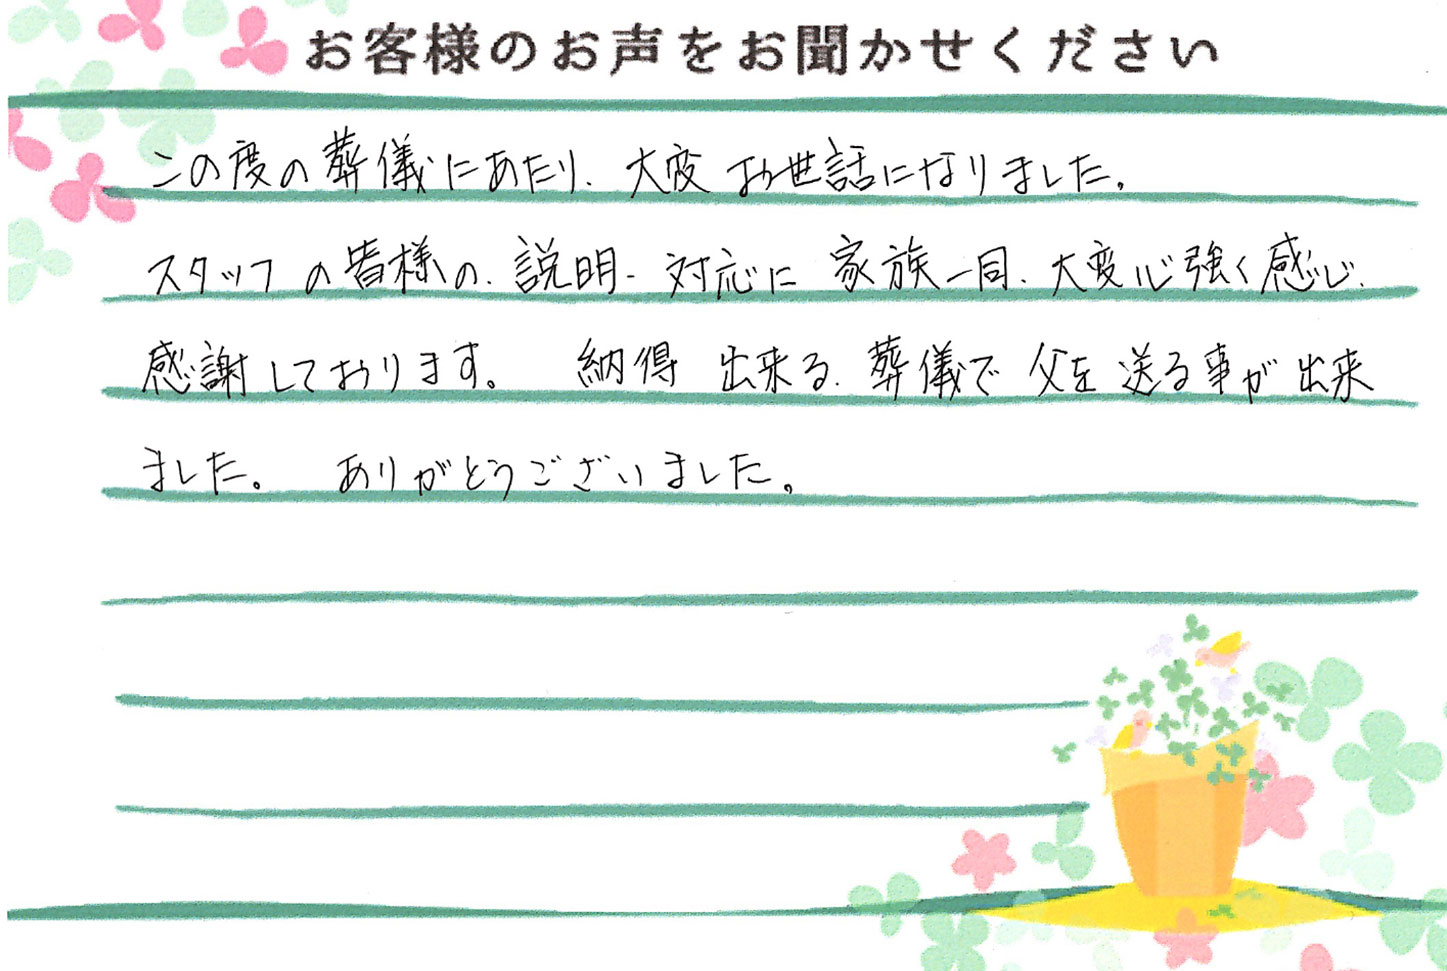 お客様のお声をお聞かせください
この度の葬儀にあたり、大変お世話になりました。
スタッフの皆様の、説明、対応に家族一同、大変心強く感じ、
感謝しております。 納得出来る、葬儀で父を送る事が出来
ました。 ありがとうございました。